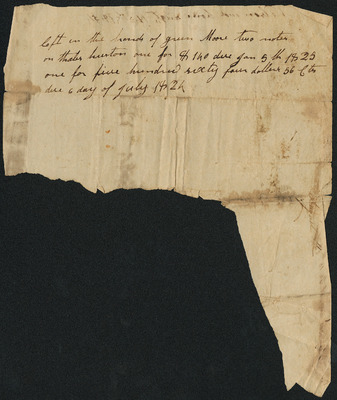 left in the hands of green Moore two notes
on thales huston one for $ 140 due Jan 5th 1823
one for five hundred sixty four dollars 56 Cts
due 6 day of July 182